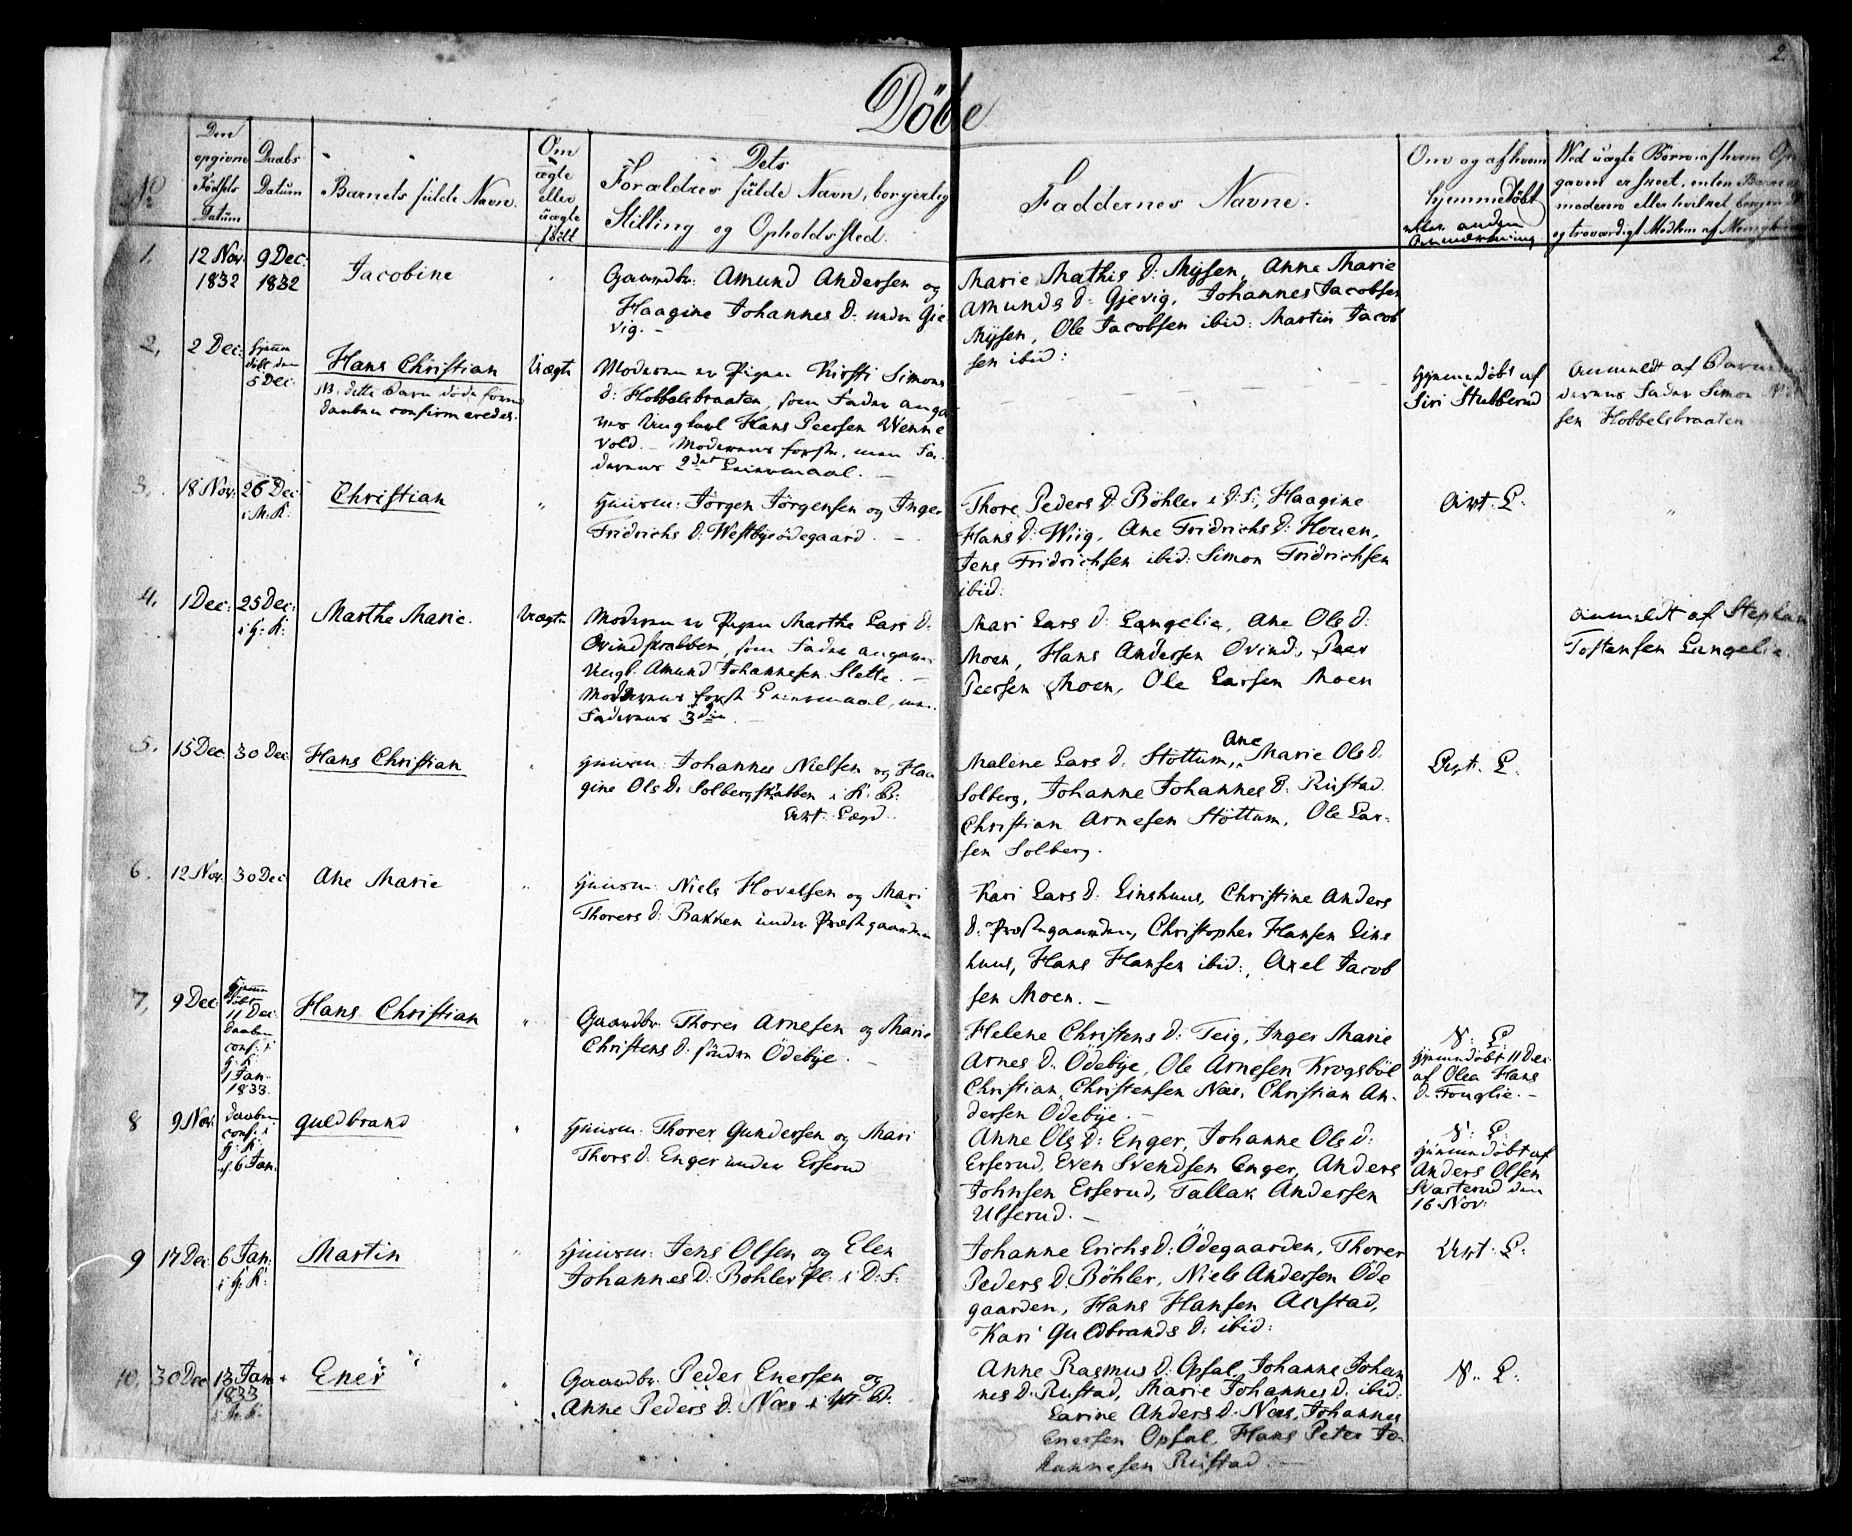 2
Döbte
No
Den
opgivne
Födsels
Datum
Daabs
Datum
Barnets fulde Navn.
Om
ægte
eller
uægte
født
Dets
Forældres fulde Navn, borgerlig
Stilling og Opholdssted.
Faddernes Navne.
Om og af hvem
hjemmedöbt
eller anden
Anmærkning
Ved uægte Börn: af hvem
gaven er skeet, enten Barnets
moderen eller hvilket
og troværdigt Medlem af
1.
12 Nov.
1832
9 Dec:
1832
Jacobine
"
Gaardbr: Amund Andersen og
Haagine Johannes D: under Gie
vig. -
Marie Mathis D: Mysen, Anne Marie
Amunds D: Gjevig, Johannes Jacobsen
Mysen, Ole Jacobsen ibid: Martin Jacob
sen ibid:
2,
2 Dec:
hjem
döbt den
5 Dec.
Hans Christian
NB. dette Barn döde förend
daaben confirmeredes.
Uægte
Moderen er Pigen Kirsti Simons
D: Hobbelsbraaten, som Fader anga
ves Ungkarl Hans Peersen Wenne
vold. - Moderens förste, men Fa-
derens 2det Leiermaal. -
Hjemmedöbt af
Siri Stubberud
Anmeldt af Barnemo
derens Fader Simon
sen Hobbelsbraaten
3,
18 Nov:
26 Dec:
i M. K.
Christian
"
Huusm: Jörgen Jörgensen og Inger
Fridrichs D: Westbyeödegaard. -
Thore Peders D: Böhler i D: S:, Haagine
Hans D: Wiig, Ane Fridrichs D: Houen,
Jens Fridrichsen ibid: Simon Fridrichsen
ibid:
Aist. L.
"
4.
1 Dec:
25 Dec:
i H: K:
Marthe Marie.
Uægte
Moderen er Pigen Marthe Lars D:
Ovindskabben, som Fader angives
Ungk. Amund Johannesen Slette. -
Moderens förste Leiermaal, men
Faderens 3die. -
Mari Lars D: Langelie, Ane Ols D:
Moen, Hans Andersen Ovind, Peer
Peersen Moen, Ole Larsen Moen
Anmeldt af Stephan
Tostensen Langelie.
5.
15 Dec
30 Dec:
Hans Christian
"
Huusm: Johannes Nielsen og Haa
gine Ols D: Solbergskabben i K. B:
Lægd.
Malene Lars D: Stöttum, Ane Marie Ols D:
Solberg, Johanne Johannes D: Rustad.
Christian Arnesen Stöttum, Ole Lar-
sen Solberg.
6.
12 Nov.
30 Dec
Ane Marie
"
Huusm: Niels Hovelsen og Mari
Thorers D: Bakken under Præstegaarden
Kari Lars D: Linshuus, Christine Anders
D: Præstegaarden, Christopher Hansen Lins
huus, Hans Hansen ibid:, Axel Jacob
sen Moen. -
7,
9 Dec:
Hjem
döbt
11 Dec:
Daaben
conf: i
H: K:
1 Jan.
1833
Hans Christian
"
Gaardbr. Thorer Arnesen og Marie
Christens D: söndre Ödebye. -
Helene Christens D: Teig, Inger Marie
Arnes D: Ödebye, Ole Arnesen Krogsböl
Christian Christensen Næs, Christian An-
dersen Ödebye. -
N: L:
Hjemmedöbt 11 Dec:
af Olea Hans
D. Fouglie. -
8
9 Nov:
daaben
conf: i
H: K:
d. 6 Jan.
Guldbrand
"
Huusm: Thorer Gundersen og Mari
Thors D: Enger under Esserud
Anne Ols D: Enger, Johanne Ols D:
Esserud, Even Svendsen Enger, Anders
Johnsen Esserud, Tallak Andersen
Ulserud. -
N: L:
Hjemmedöbt af
Anders Olsen
Svarterud den
16 Nov:
9
17 Dec:
6 Jan:
i H: K:
Martin
"
Huusm: Jens Olsen og Elen
Johannes D: Böhler Pl. i D: S:
Johanne Erichs D: Ödegaarden, Thorer
Peders D: Böhler, Niels Andersen Öde
gaarden, Hans Hansen Austad,
Kari Guldbrands D: ibid:
L:
10,
30 Dec
13 Jan
1833
i H: K:
Ener
"
Gaardbr: Peder Enersen og
Anne Peders D: Næs i
Anne Rasmus D: Opsal, Johanne Johan
nes D: Rustad, Marie Johannes D. ibid.
Larine Anders D: Næs, Johannes
Enersen Opsal, Hans Peter Jo
hannesen Rustad. -
N. L: